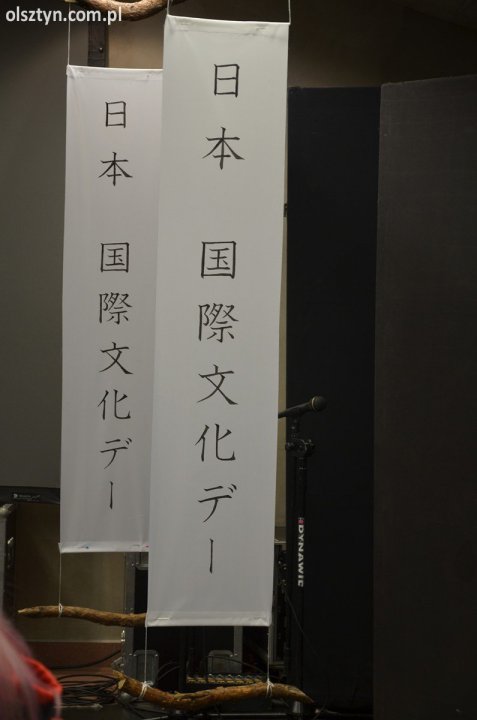 olsztyn.com.pl
日本 国際文化デー
日本 国際文化デー
DYNAWIE